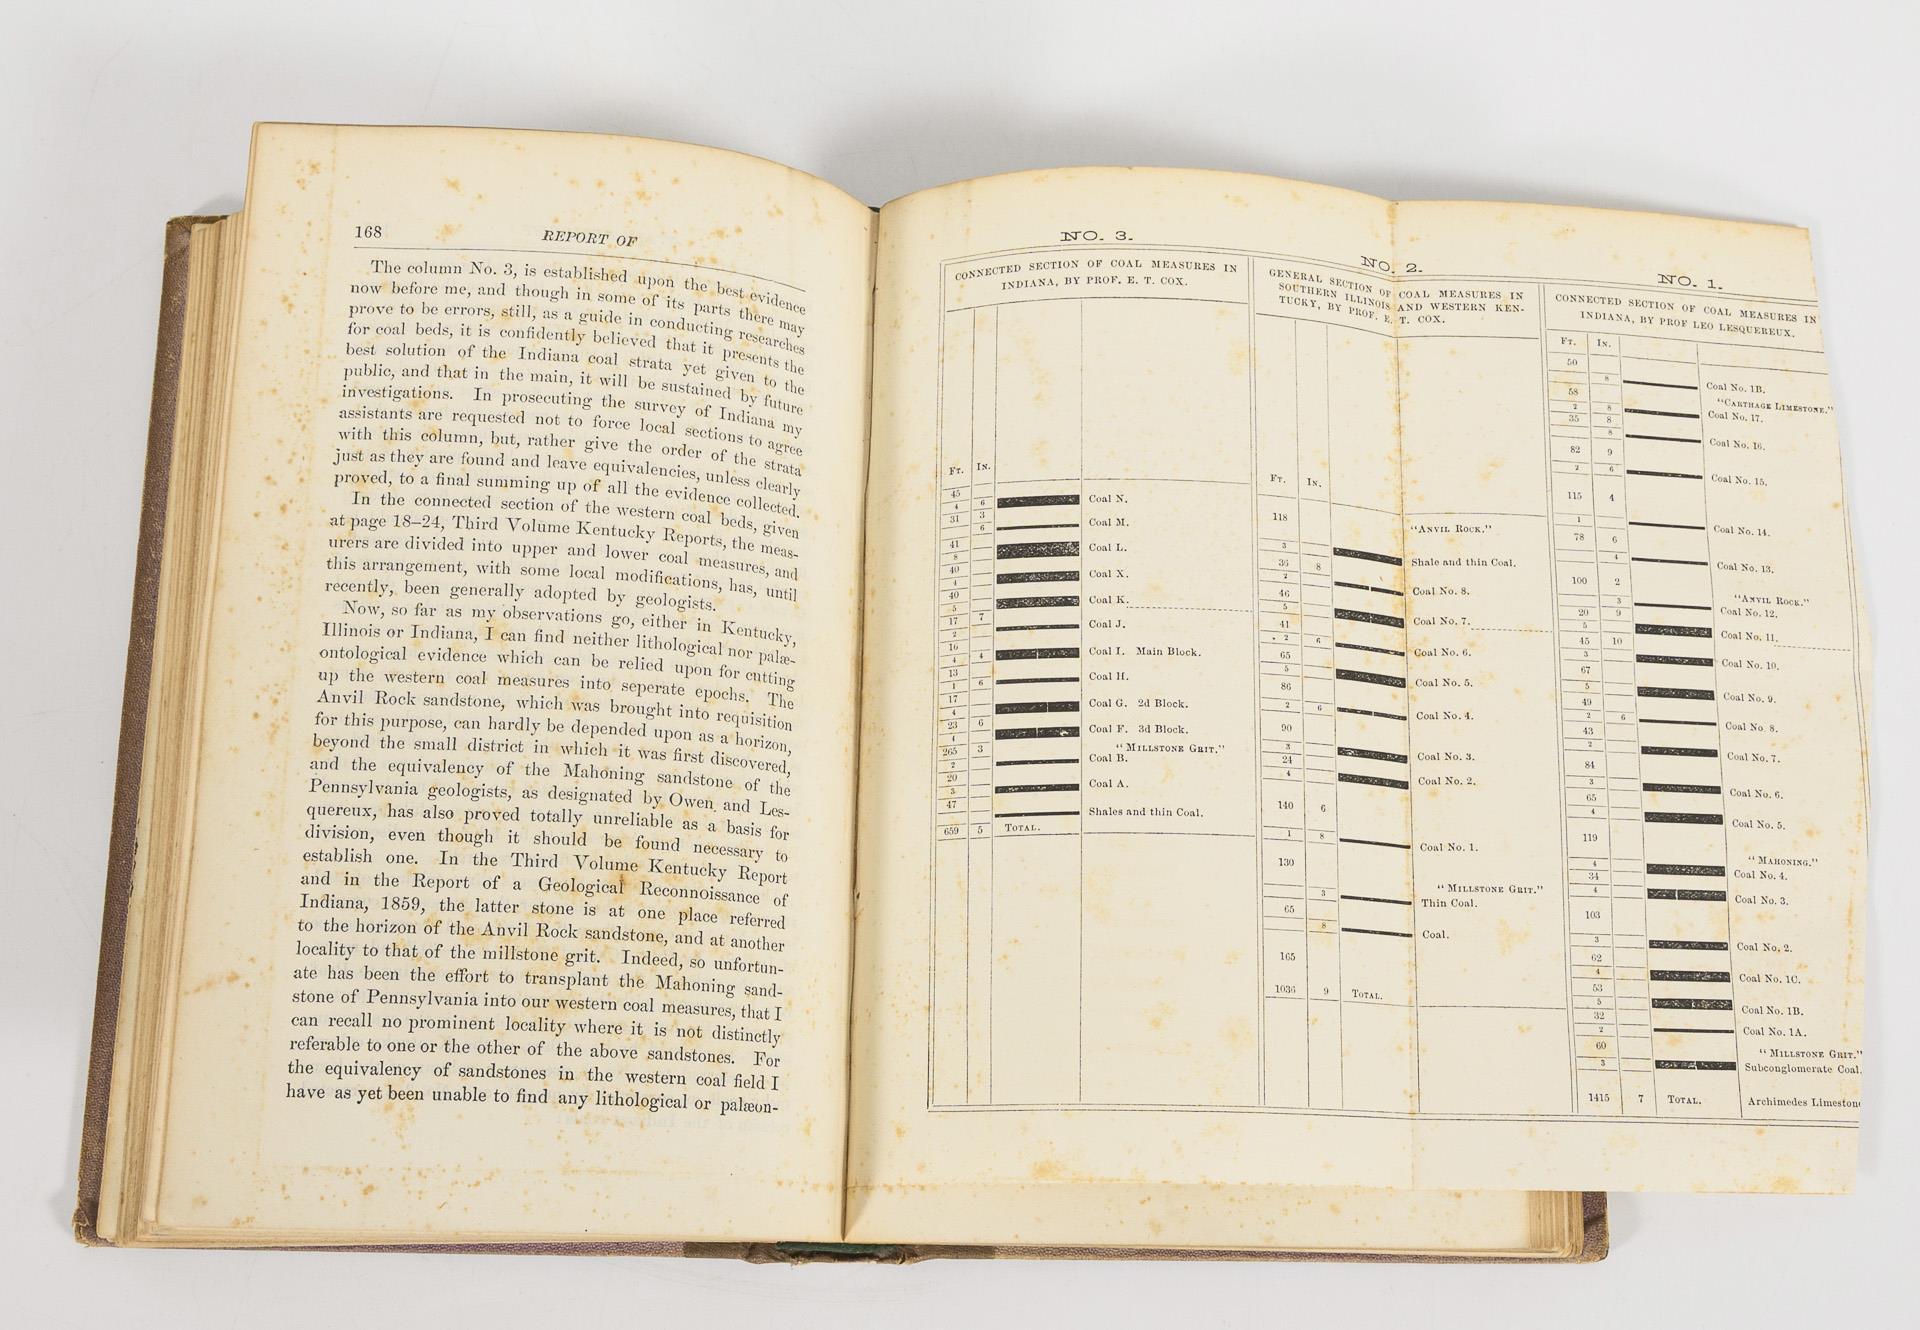 168
REPORT OF
The column No. 3, is established upon the best evidence
now before me, and though in some of its parts there may
prove to be errors, still, as a guide in conducting researches
for coal beds, it is confidently believed that it presents the
best solution of the Indiana coal strata yet given to the
public, and that in the main, it will be sustained by future
investigations. In prosecuting the survey of Indiana my
assistants are requested not to force local sections to agree
with this column, but, rather give the order of the strata
just as they are found and leave equivalencies, unless clearly
proved, to a final summing up of all the evidence collected.
In the connected section of the western coal beds, given
at page 18–24, Third Volume Kentucky Reports, the meas-
urers are divided into upper and lower coal measures, and
this arrangement, with some local modifications, has, until
recently, been generally adopted by geologists.
Now, so far as my observations go, either in Kentucky,
Illinois or Indiana, I can find neither lithological nor palæ-
ontological evidence which can be relied upon for cutting
up the western coal measures into seperate epochs. The
Anvil Rock sandstone, which was brought into requisition
for this purpose, can hardly be depended upon as a horizon,
beyond the small district in which it was first discovered,
and the equivalency of the Mahoning sandstone of the
Pennsylvania geologists, as designated by Owen and Les-
quereux, has also proved totally unreliable as a basis for
division, even though it should be found necessary to
establish one. In the Third Volume Kentucky Report
and in the Report of a Geological Reconnoissance of
Indiana, 1859, the latter stone is at one place referred
to the horizon of the Anvil Rock sandstone, and at another
locality to that of the millstone grit. Indeed, so unfortun-
ate has been the effort to transplant the Mahoning sand-
stone of Pennsylvania into our western coal measures, that I
can recall no prominent locality where it is not distinctly
referable to one or the other of the above sandstones. For
the equivalency of sandstones in the western coal field I
have as yet been unable to find any lithological or palæon-
NO. 3.
CONNECTED SECTION OF COAL MEASURES IN
INDIANA, BY PROF. E. T. COX.
FT. IN.
45
4 6 Coal N.
31 3
6 Coal M.
41
8 Coal L.
40
4 Coal X.
40
5 Coal K.
17 7
2 Coal J.
16
4 4 Coal I. Main Block.
13
1 6 Coal H.
17
4 Coal G. 2d Block.
23 6
4 Coal F. 3d Block.
265 3 "MILLSTONE GRIT."
2 Coal B.
20
3 Coal A.
47
Shales and thin Coal.
659 5 TOTAL.
NO. 2.
GENERAL SECTION OF COAL MEASURES IN
SOUTHERN ILLINOIS AND WESTERN KEN-
TUCKY, BY PROF. E. T. COX.
FT. IN.
118 "ANVIL ROCK."
3
36 8 Shale and thin Coal.
2
46 Coal No. 8.
5
41 Coal No. 7.
2 6
65 Coal No. 6.
5
86 Coal No. 5.
2 6 Coal No. 4.
90
3
24 Coal No. 3.
4 Coal No. 2.
140 6
1 8 Coal No. 1.
130
"MILLSTONE GRIT."
3 Thin Coal.
65
8 Coal.
165
1036 9 TOTAL.
NO. 1.
CONNECTED SECTION OF COAL MEASURES IN
INDIANA, BY PROF LEO LESQUEREUX.
FT. IN.
50
8 Coal No. 1B.
58 "CARTHAGE LIMESTONE."
2 8 Coal No. 17.
35 8
8 Coal No. 16.
82 9
2 6 Coal No. 15.
115 4
1 Coal No. 14.
78 6
4 Coal No. 13.
100 2 "ANVIL ROCK."
3 Coal No. 12.
20 9
5 Coal No. 11.
45 10
3 Coal No. 10.
67
5 Coal No. 9.
49
2 6 Coal No. 8.
43
2 Coal No. 7.
84
3 Coal No. 6.
65
4 Coal No. 5.
119
"MAHONING."
4 Coal No. 4.
34
4 Coal No. 3.
103
3 Coal No. 2.
62
4 Coal No. 1C.
53
5 Coal No. 1B.
32
2 Coal No. 1A.
60 "MILLSTONE GRIT."
3 Subconglomerate Coal.
1415 7 TOTAL. Archimedes Limestone